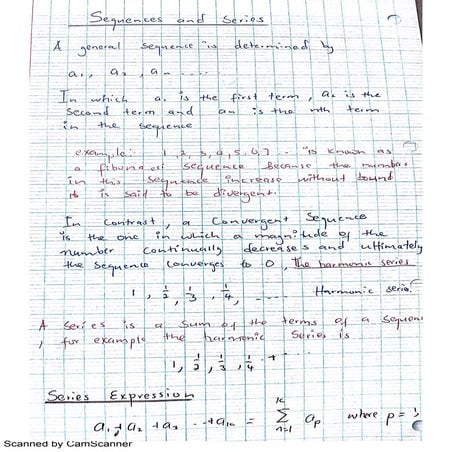 Sequences and Series
A general sequence is determined by
a₁, a₂, aₙ ....
In which a₁ is the first term, a₂ is the
second term and an is the nth term
in the sequence
example: 1, 2, 3, 4, 5, 6, 7 ... is known as
a sequence Because the number
in this sequence increase without bound
it is said to be divergent.
In contrast, a Convergent Sequence
is the one in which a magnitude of the
number continually decreases and ultimately
the sequence converges to 0, The harmonic series
1, 1/2, 1/3, 1/4, .... Harmonic serie
A Series is a sum of the terms of a sequen
, for example the harmonic Series is
1, 1/2, 1/3, 1/4 + ...
Series Expression
a₁ + a₂ + a₃ ... + a₁₀ = Σ aₚ where p =
Scanned by CamScanner